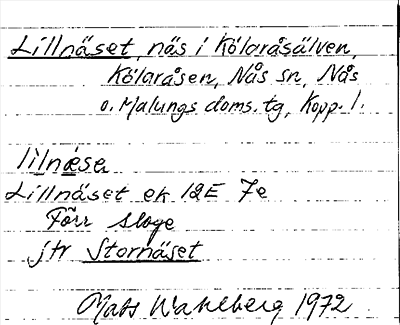 Lillnäset, näs i Kölaråsälven,
Kölaråsen, Nås sn, Nås
o. Malungs doms. tg, Kopp. l.
lìlnæsə
Lillnäset ek 12E 7e
Förr sloge
jfr Stornäset
Mats Wahlberg 1972